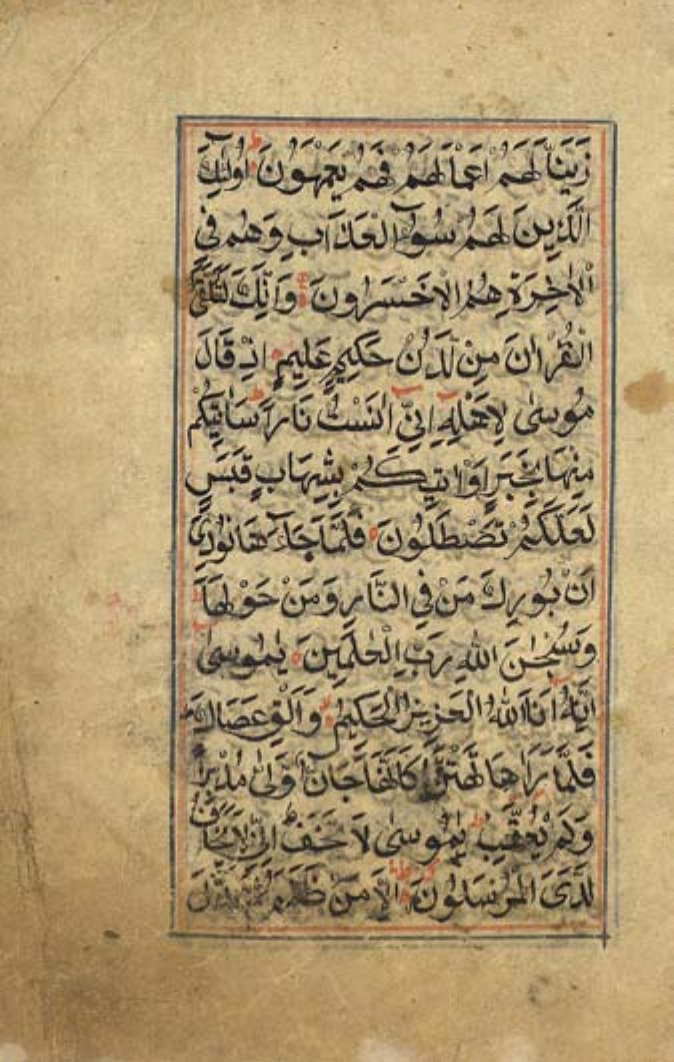 زَيَّنَّا لَهُمْ اَعْمَالَهُمْ فَهُمْ يَعْمَهُوْنَ اُولٰٓئِكَ
الَّذِيْنَ لَهُمْ سُوْٓءُ الْعَذَابِ وَهُمْ فِى
الْاٰخِرَةِ هُمُ الْاَخْسَرُوْنَ وَاِنَّكَ لَتُلَقَّى
الْقُرْاٰنَ مِنْ لَّدُنْ حَكِيْمٍ عَلِيْمٍ اِذْ قَالَ
مُوْسٰى لِاَهْلِهٖٓ اِنِّىْٓ اٰنَسْتُ نَارًا سَاٰتِيْكُمْ
مِنْهَا بِخَبَرٍ اَوْ اٰتِيْكُمْ بِشِهَابٍ قَبَسٍ
لَعَلَّكُمْ تَصْطَلُوْنَ فَلَمَّا جَآءَهَا نُوْدِىَ
اَنْ بُوْرِكَ مَنْ فِى النَّارِ وَمَنْ حَوْلَهَا
وَسُبْحٰنَ اللّٰهِ رَبِّ الْعٰلَمِيْنَ يٰمُوْسٰى
اِنَّهٗ اَنَا اللّٰهُ الْعَزِيْزُ الْحَكِيْمُ وَاَلْقِ عَصَاكَ
فَلَمَّا رَاٰهَا تَهْتَزُّ كَاَنَّهَا جَانٌّ وَّلّٰى مُدْبِرًا
وَّلَمْ يُعَقِّبْ يٰمُوْسٰى لَا تَخَفْ اِنِّىْ لَا يَخَافُ
لَدَىَّ الْمُرْسَلُوْنَ اِلَّا مَنْ ظَلَمَ ثُمَّ بَدَّلَ